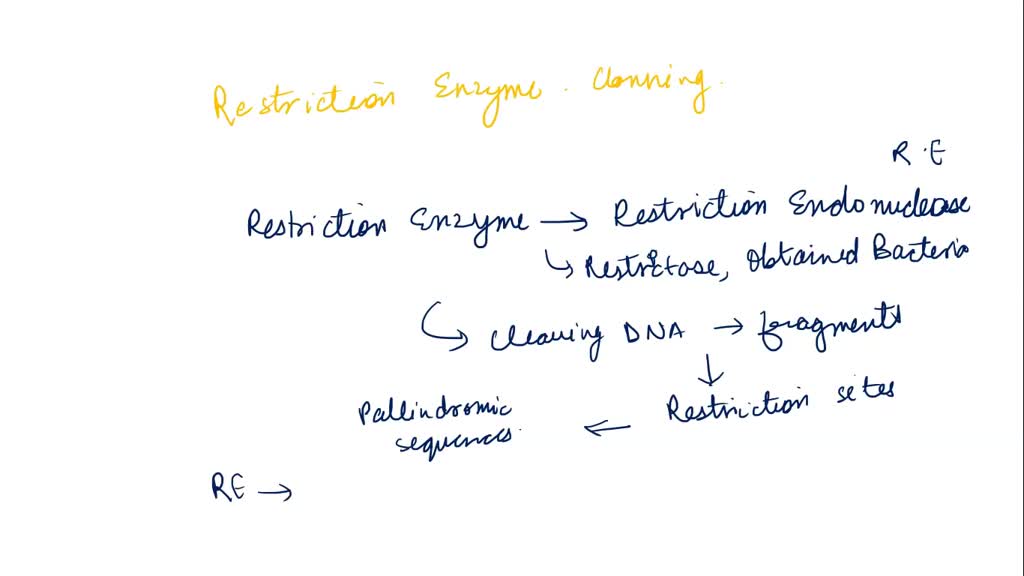 Restriction Enzyme. Clonning.
R.E
Restriction Enzyme → Restriction Endonuclease
↳ Restrictase, Obtained Bacteria
↳ Cleaving DNA → fragments
↓
Pallindromic ← Restriction sites
sequences.
RE →